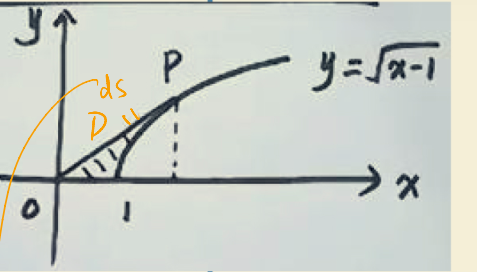 y
P
y=√x-1
ds
D
0
1
x